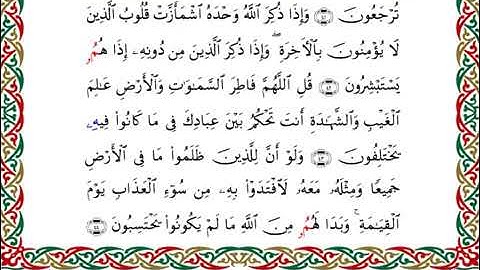 تُرْجَعُونَ ۝٤١ وَإِذَا ذُكِرَ ٱللَّهُ وَحْدَهُ ٱشْمَأَزَّتْ قُلُوبُ ٱلَّذِينَ
لَا يُؤْمِنُونَ بِٱلْأَخِرَةِ ۖ وَإِذَا ذُكِرَ ٱلَّذِينَ مِن دُونِهِۦٓ إِذَا هُمُۥ
يَسْتَبْشِرُونَ ۝٤٢ قُلِ ٱللَّهُمَّ فَاطِرَ ٱلسَّمَٰوَٰتِ وَٱلْأَرْضِ عَٰلِمَ
ٱلْغَيْبِ وَٱلشَّهَٰدَةِ أَنتَ تَحْكُمُ بَيْنَ عِبَادِكَ فِى مَا كَانُوا۟ فِيهِۦ
يَخْتَلِفُونَ ۝٤٣ وَلَوْ أَنَّ لِلَّذِينَ ظَلَمُوا۟ مَا فِى ٱلْأَرْضِ
جَمِيعًا وَمِثْلَهُۥ مَعَهُۥ لَٱفْتَدَوْا۟ بِهِۦ مِن سُوٓءِ ٱلْعَذَابِ يَوْمَ
ٱلْقِيَٰمَةِ ۚ وَبَدَا لَهُمُۥ مِنَ ٱللَّهِ مَا لَمْ يَكُونُوا۟ يَحْتَسِبُونَ ۝٤٤